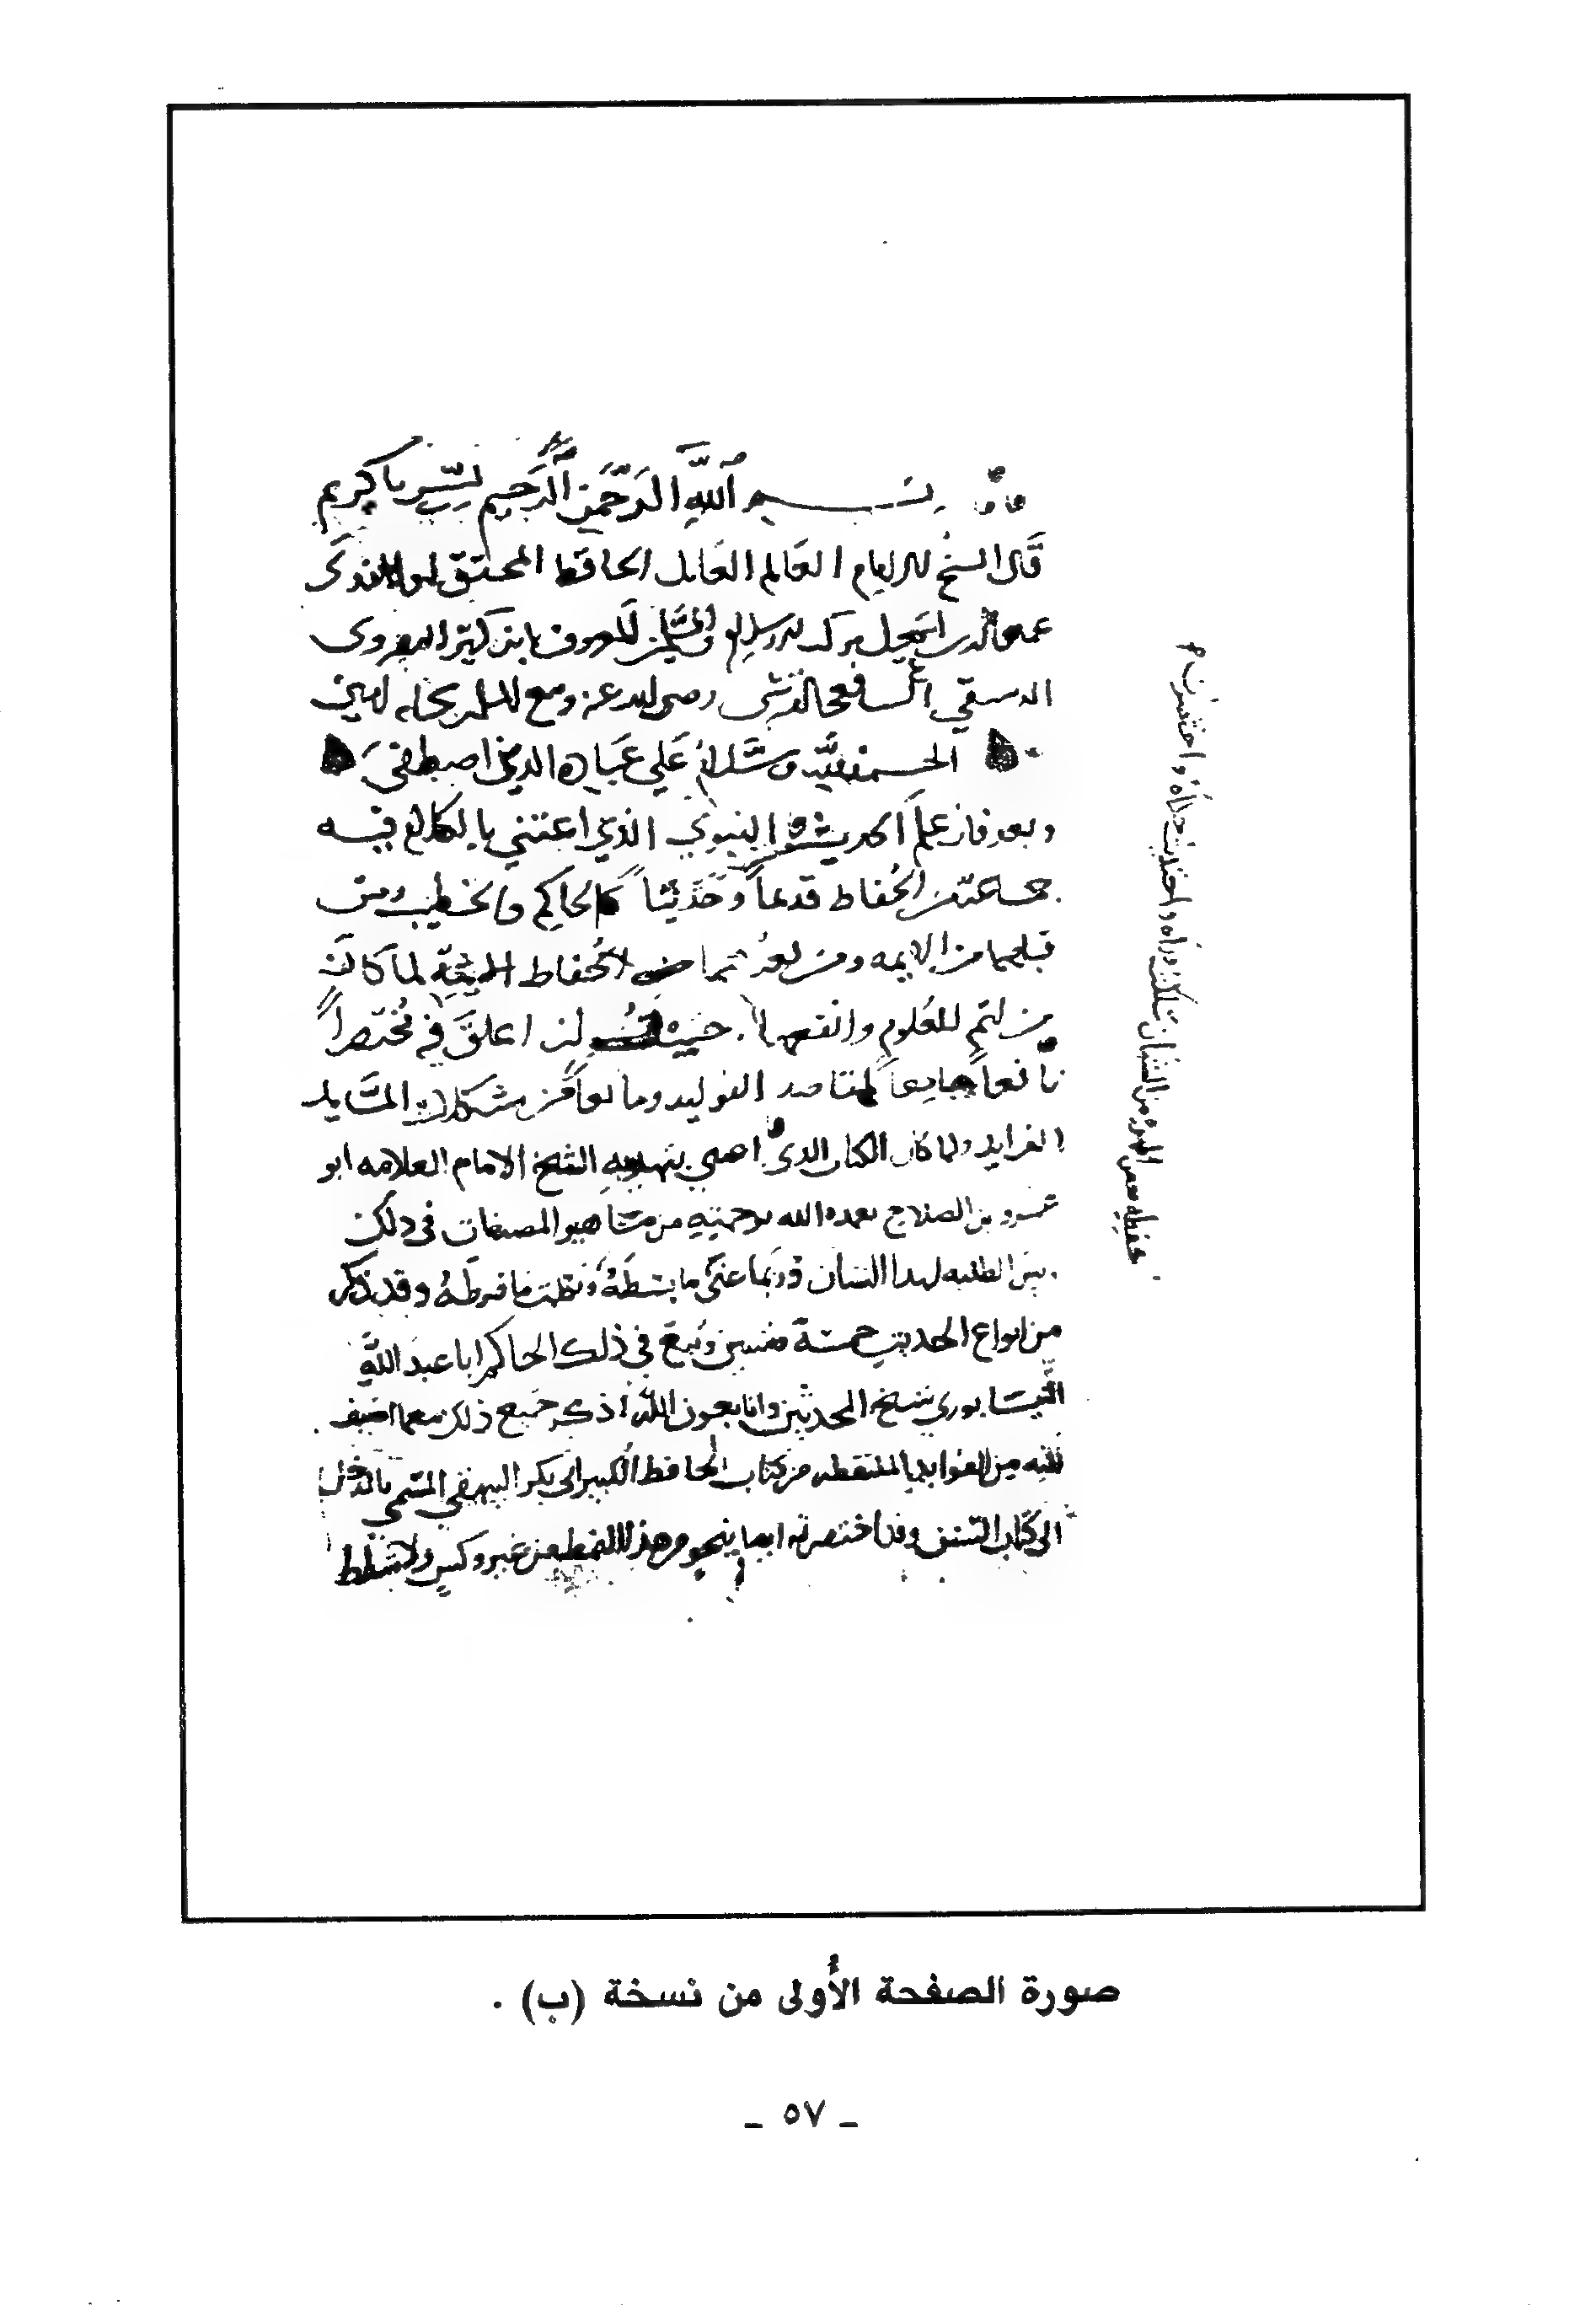 بسم الله الرحمن الرحيم يسر يا كريم
قال الشيخ الامام العالم العامل الحافظ المحقق ابو الفدا
عماد الدين اسمعيل بركة الاسلام والمسلمين المعروف بابن كثير
الدمسقي الشافعي القرشي رضي الله عنه ومتع المسلمين بحياته امين
الحمد لله وسلام على عباده الذين اصطفى
وبعد فان علم الحديث النبوي الذي اعتنى بالكلام فيه
جماعة من الحفاظ قديماً وحديثاً كالحاكم والخطيب ومن
قبلهما من الايمه ومن بعدهما من الحفاظ لما كان
من اهم العلوم وانفعها احببت ان اعلق فيه مختصراً
نافعاً جامعاً لمقاصد الفوايد ومانعاً من مشكلات المسايل
الفرايد ولما كان الكتاب الذي اعتنى بتهذيبه الشيخ الامام العلامه ابو
عمرو بن الصلاح تغمده الله برحمته من مشاهير المصنفات في ذلك
بين الطلبه لهذا الشان وربما عنى ما بسطه ونظمت ما فرطه وقد ذكر
من انواع الحديث خمسة وستين وتبع في ذلك الحاكم ابا عبد الله
النيسابوري شيخ المحدثين وانا بعون الله اذكر جميع ذلك مع ما اضيف
اليه من الفوايد الملتقطه من كتاب الحافظ الكبير ابي بكر البيهقي المسمى بالمدخل
الى كتاب السنن وقد اختصرته ايضا بنحو من هذا النمط من غير وكس ولا شطط
صورة الصفحة الأولى من نسخة (ب) .
ـ ٥٧ ـ